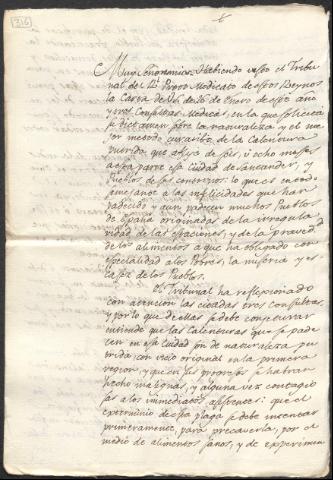 216
Muy Señor mio: Habiendo visto el Tribu
nal del Rl. Proto Medicato de estos Reynos
la Carta de Vs. de 26 de Enero de este año
y tres Consultas Medicas, en la que solicita
su dictamen sobre la naturaleza y el me
jor metodo curativo de la Calentura
putrida que afligе de seis, ú ocho meses
a esta parte esa Ciudad de Santander, y
Pueblos de su contorno: lo que es en todo
semejante a las infelicidades que han
padecido y aun padecen muchos Pueblos
de España originadas de la irregula
ridad de las estaciones, y de la praved.
de los alimentos a que ha obligado con
especialidad a los Pobres, la miseria y es
casez de los Pueblos.
El Tribunal ha reflexionado
con atencion las citadas tres Consultas
y por lo que de ellas se debe conjeturar
entiende que las Calenturas que se pade
cen en esa Ciudad son de naturaleza pu
trida, con vicio original en la primera
region, y que en sus progresos se habran
hecho malignas, y alguna vez contagio
sas a los inmediatos asistentes: que el
exterminio de esta plaga se debe intentar
primeramente, para precaverla, por el
medio de alimentos sanos, y de experimen